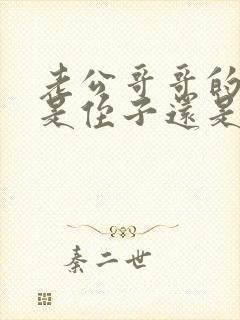 老公哥哥的
是侄子還是
秦二世